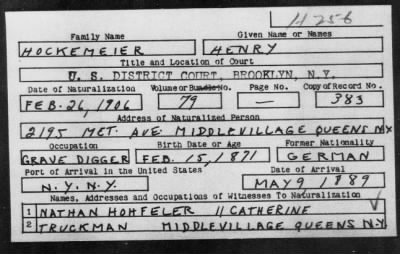 H 256
Family Name Given Name or Names
HOCKEMEIER HENRY
Title and Location of Court
U. S. DISTRICT COURT, BROOKLYN, N.Y.
Date of Naturalization Volume or Bundle No. Page No. Copy of Record No.
FEB. 26, 1906 79 — 383
Address of Naturalized Person
2195 MET. AVE. MIDDLEVILLAGE QUEENS NY
Occupation Birth Date or Age Former Nationality
GRAVE DIGGER FEB. 15, 1871 GERMAN
Port of Arrival in the United States Date of Arrival
N.Y. N.Y. MAY 9 1889
Names, Addresses and Occupations of Witnesses To Naturalization
1 NATHAN HOHFELER 11 CATHERINE
2 TRUCKMAN MIDDLEVILLAGE QUEENS N.Y.